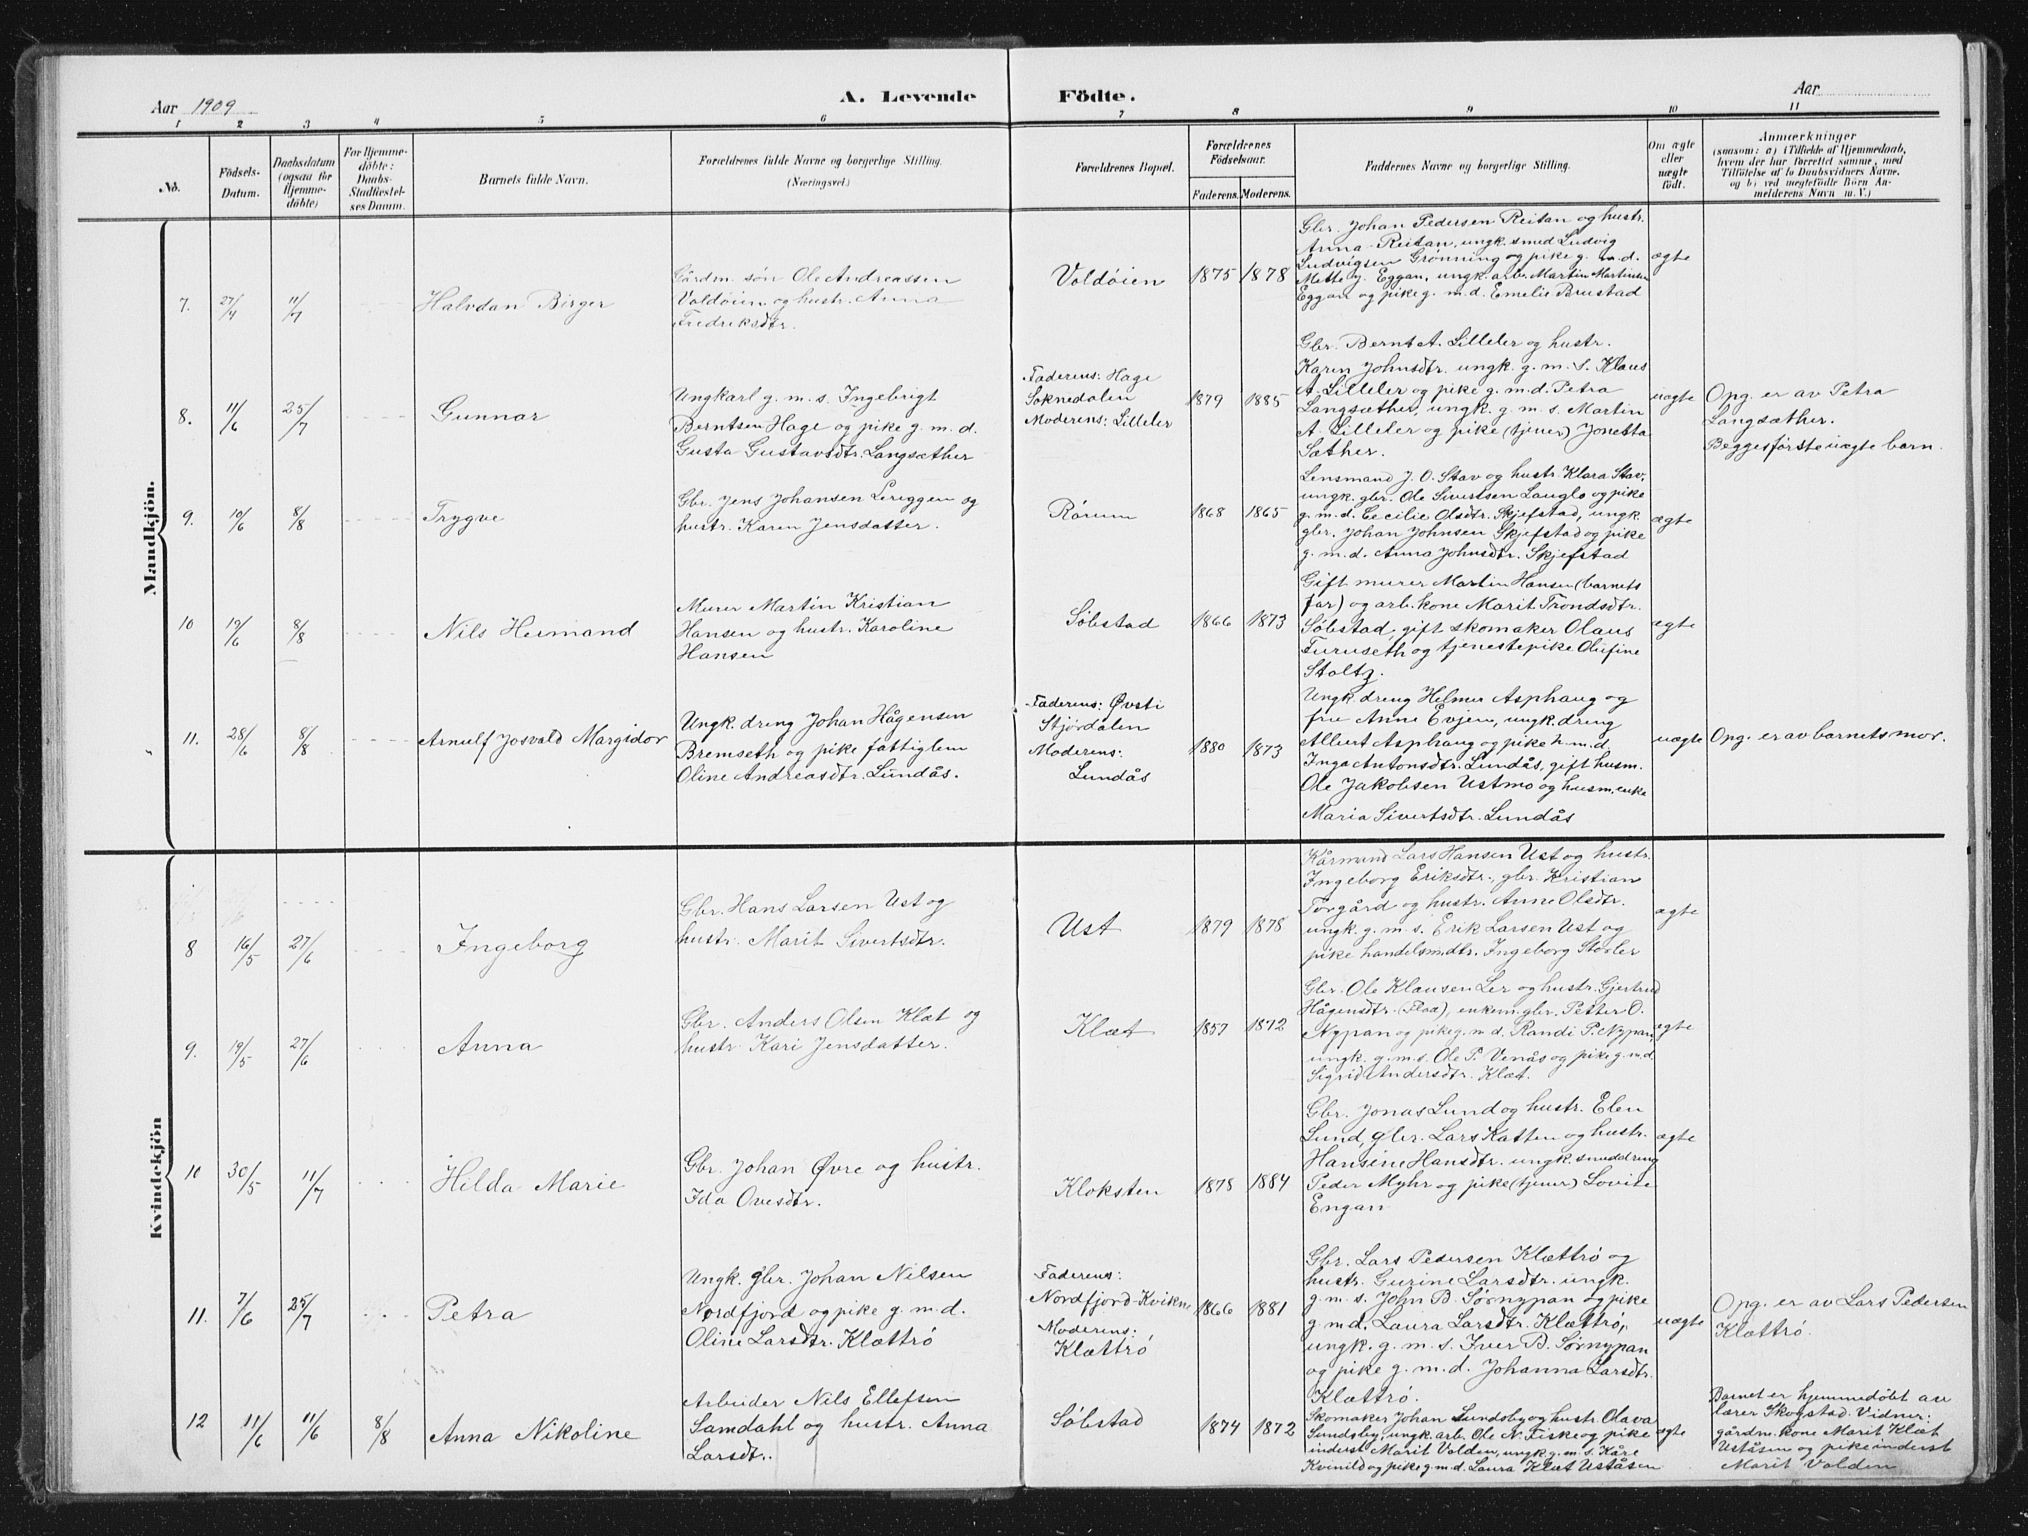 Aar 1909
A. Levende
Födte.
Aar
1 2 3 4 5 6 7 8 9 10 11
No.
Födsels-
Datum.
Daabsdatum
(ogsaa for
Hjemme-
döbte)
For Hjemme-
döbte:
Daabs-
Stadfæstel-
ses Datum.
Barnets fulde Navn.
Forældrenes fulde Navne og borgerlige Stilling.
(Næringsvei.)
Forældrenes Bopæl.
Forældrenes
Födselsaar.
Faderens. Moderens.
Faddernes Navne og borgerlige Stilling.
Om ægte
eller
uægte
födt.
Anmærkninger
(saasom: a) i Tilfælde af Hjemmedaab,
hvem der har forrettet samme, med
Tilföielse af to Daabsvidners Navne,
og b) ved uægtefödte Börn An-
melderens Navn m. V.)
Mandkjön.
7. 27/4 11/7
Halvdan Birger
Gårdm. søn Ole Andreassen
Voldöien og hustr. Anna
Fredriksdtr.
Voldöien
1875 1878
Gbr. Johan Pedersen Reitan og hustr.
Anna Reitan, ungk. smed Ludvig
Ludvigsen Grønning og pike g. m. d.
Mette J. Eggan, ungk. arb. Martin Martinsen
Eggan og pike g. m. d. Emelie Brustad
ægte
8. 11/6 25/7
Gunnar
Ungkarl g. m. s. Ingebrigt
Berntsen Hage og pike g. m. d.
Gusta Gustavsdtr. Langsæther
Faderens: Hage
Soknedalen
Moderens: Lilleler
1879 1885
Gbr. Bernt A. Lilleler og hustr.
Karen Johnsdtr. ungk. g. m. s. Klaus
A. Lilleler og pike g. m. d. Petra
Langsæther, ungk. g. m. s. Martin
A. Lilleler og pike (tjener) Jonetta
Sæther.
uægte
Opg. er av Petra
Langsæther.
Begges förste uægte barn.
9. 10/6 8/8
Trygve
Gbr. Jens Johansen Lereggen og
hustr. Karen Jensdatter.
Rörum
1868 1865
Lensmand J. O. Stav og hustr. Klara Stav,
ungk. gbr. Ole Sivertsen Langlo og pike
g. m. d. Cecilie Olsdtr. Skjefstad, ungk.
gbr. Johan Johnsen Skjefstad og pike
g. m. d. Anna Johnsdtr. Skjefstad
ægte
10 19/6 8/8
Nils Hermand
Murer Martin Kristian
Hansen og hustr. Karoline
Hansen
Söbstad
1866 1873
Gift murer Martin Hansen (barnets
far) og arb. kone Marit Trondsdtr.
Söbstad, gift skomaker Olaus
Furuseth og tjenestepike Olufine
Stoltz.
ægte
11. 28/6 8/8
Arnulf Josvald Margido
Ungk. dreng Johan Hågensen
Bremseth og pike fattiglem
Oline Andreasdtr. Lundås.
Faderens: Øvsti
Stjørdalen
Moderens:
Lundås
1880 1873
Ungk. dreng Helmer Asphaug og
frue Anne Evjen, ungk. dreng
Albert Asphaug og pike h. m. d.
Inga Antonsdtr. Lundås, gift husm.
Ole Jakobsen Ustmo og husm. enke
Maria Sivertsdtr. Lundås
uægte
Opg. er av barnets mor.
Kvindekjön
8 16/5 27/6
Ingeborg
Gbr. Hans Larsen Ust og
hustr. Marit Sivertsdtr.
Ust
1879 1878
Kårmand Lars Hansen Ust og hustr.
Ingeborg Eriksdtr., gbr. Kristian
Torgård og hustr. Anne Olsdtr.
ungk. g. m. s. Erik Larsen Ust og
pike handelsmdtr. Ingeborg Storler
ægte
9. 19/5 27/6
Anna
Gbr. Anders Olsen Klæt og
hustr. Kari Jensdatter.
Klæt
1857 1872
Gbr. Ole Klausen Ler og hustr. Gjertrud
Hågensdtr. (Flaa), enkem. gbr. Petter O.
Nypan og pike g. m. d. Randi P. Nypan,
ungk. g. m. s. Ole P. Venås og pike g. m. d.
Sigrid Andersdtr. Klæt.
ægte
10 30/5 11/7
Hilda Marie
Gbr. Johan Øvre og hustr.
Ida Ovesdtr.
Kloksten
1878 1884
Gbr. Jonas Lund og hustr. Elen
Lund, gbr. Lars Katten og hustr.
Hansine Hansdtr. ungk. smeddreng
Peder Myhr og pike (tjener) Lovise
Engan
ægte
11. 7/6 25/7
Petra
Ungk. gbr. Johan Nilsen
Nordfjord og pike g. m. d.
Oline Larsdtr. Klættrö
Faderens:
Nordfjord-Kvikne
Moderens:
Klættrö
1866 1881
Gbr. Lars Pedersen Klættrö og
hustr. Gurine Larsdtr. ungk.
g. m. s. John B. Sørnypan og pike
g. m. d. Laura Larsdtr. Klættrö,
ungk. g. m. s. Iver B. Sørnypan
og pike g. m. d. Johanna Larsdtr.
Klættrö.
uægte
Opg. er av Lars Pedersen
Klættrö.
12 11/6 11/6 8/8
Anna Nikoline
Arbeider Nils Ellefsen
Samdahl og hustr. Anna
Larsdt.
Söbstad
1874 1872
Skomaker Johan Sundsby og hustr. Olava
Sundsby, ungk. arb. Ole N. Fiske og pike
inderst Marit Valden, ungk. g. m. s. Kåre
Kvinild og pike g. m. d. Laura Klæt Uståsen
ægte
Barnet er hjemmedöbt av
lærer Skogstad. Vidner:
gårdm. kone Marit Klæt
Uståsen og pike inderst
Marit Valden